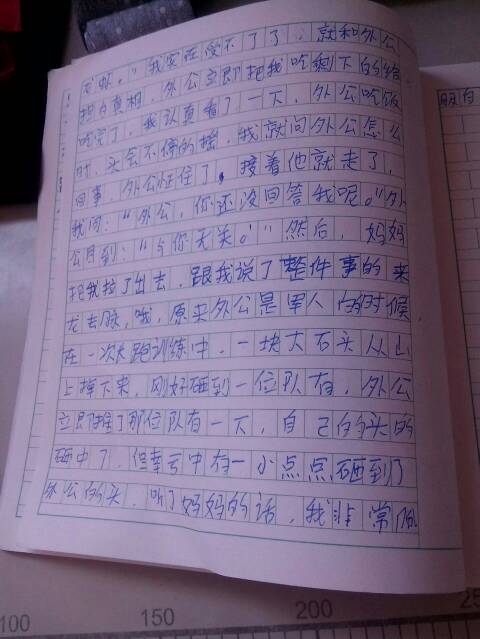 "我实在受不了了，就和外公
指白真相，外公立即把我吃剩下的给
吃完了，我认真看了一下，外公吃饭
时，头会不停的摇，我就问外公怎么
回事，外公怔住了，接着他就走了，
我问："外公，你还没回答我呢。"外
公回到："与你无关。"然后，妈妈
把我拉了出去，跟我说了整件事的来
龙去脉，哦，原来外公是军人的时候
在一次长跑训练中，一块大石头从山
上掉下来，刚好砸到一位队有，外公
立即推了那位队有一下，自己的头的
砸中了，但幸亏中有一小点点砸到了
外公的头，听了妈妈的话，我非常佩
100 150 200